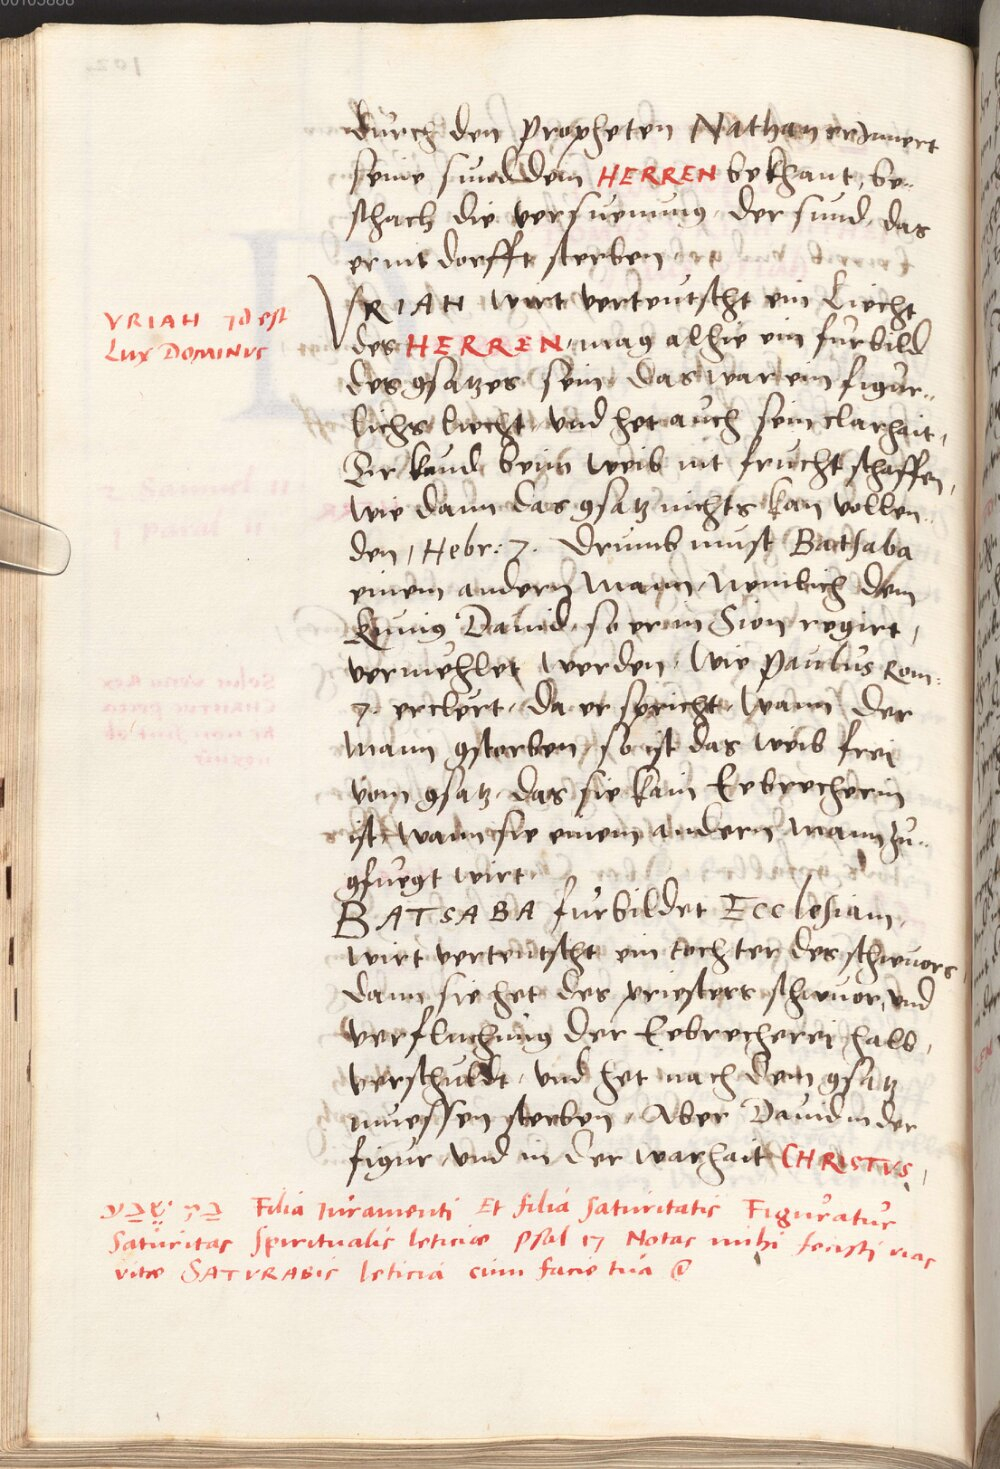 durch den Propheten Nathan erinnert
seine sund dem HERREN bekhant, be-
schach die versuenung der sund, das
er nit dorfft sterben
VRIAH wirt verteutscht ein Liecht
des HERREN, mag alhie ein furbild
des gsatzes sein, das war ein figur-
lichs liecht und het auch sein clarhait,
Er kund beim weib nit frucht schaffen,
wie dann das gsatz nichts kan vollen-
den, Hebr: 7. Drumb must Batsaba
einem andern Mann, Nemlich dem
Kunig Dauid, so er in Sion regirt,
vermehlet werden, Wie Paulus Rom:
7. erclert, da er spricht, Wann der
Mann gstorben, so ist das weib frei
vom gsatz, das sie kain Eebrecherin
ist, wann sie einem andern Mann zu-
gfuegt wirt.
BATSABA furbildet Ecclesiam,
wirt verteutscht ein tochter des schwuors
dann sie het des priesters schwuor, und
verfluchung der Eebrecherei halb,
verschuldt, und het nach dem gsatz
muessen sterben, Aber Dauid in der
figur, und in der warhait CHRISTVS,
VRIAH id est
Lux DOMINVS
בת שבע Filia iuramenti Et filia saturitatis Figuratur
Saturitas spiritualis leticiae Psal 17 Notas mihi fecisti vias
vitae SATVRABIS leticia cum facie tua